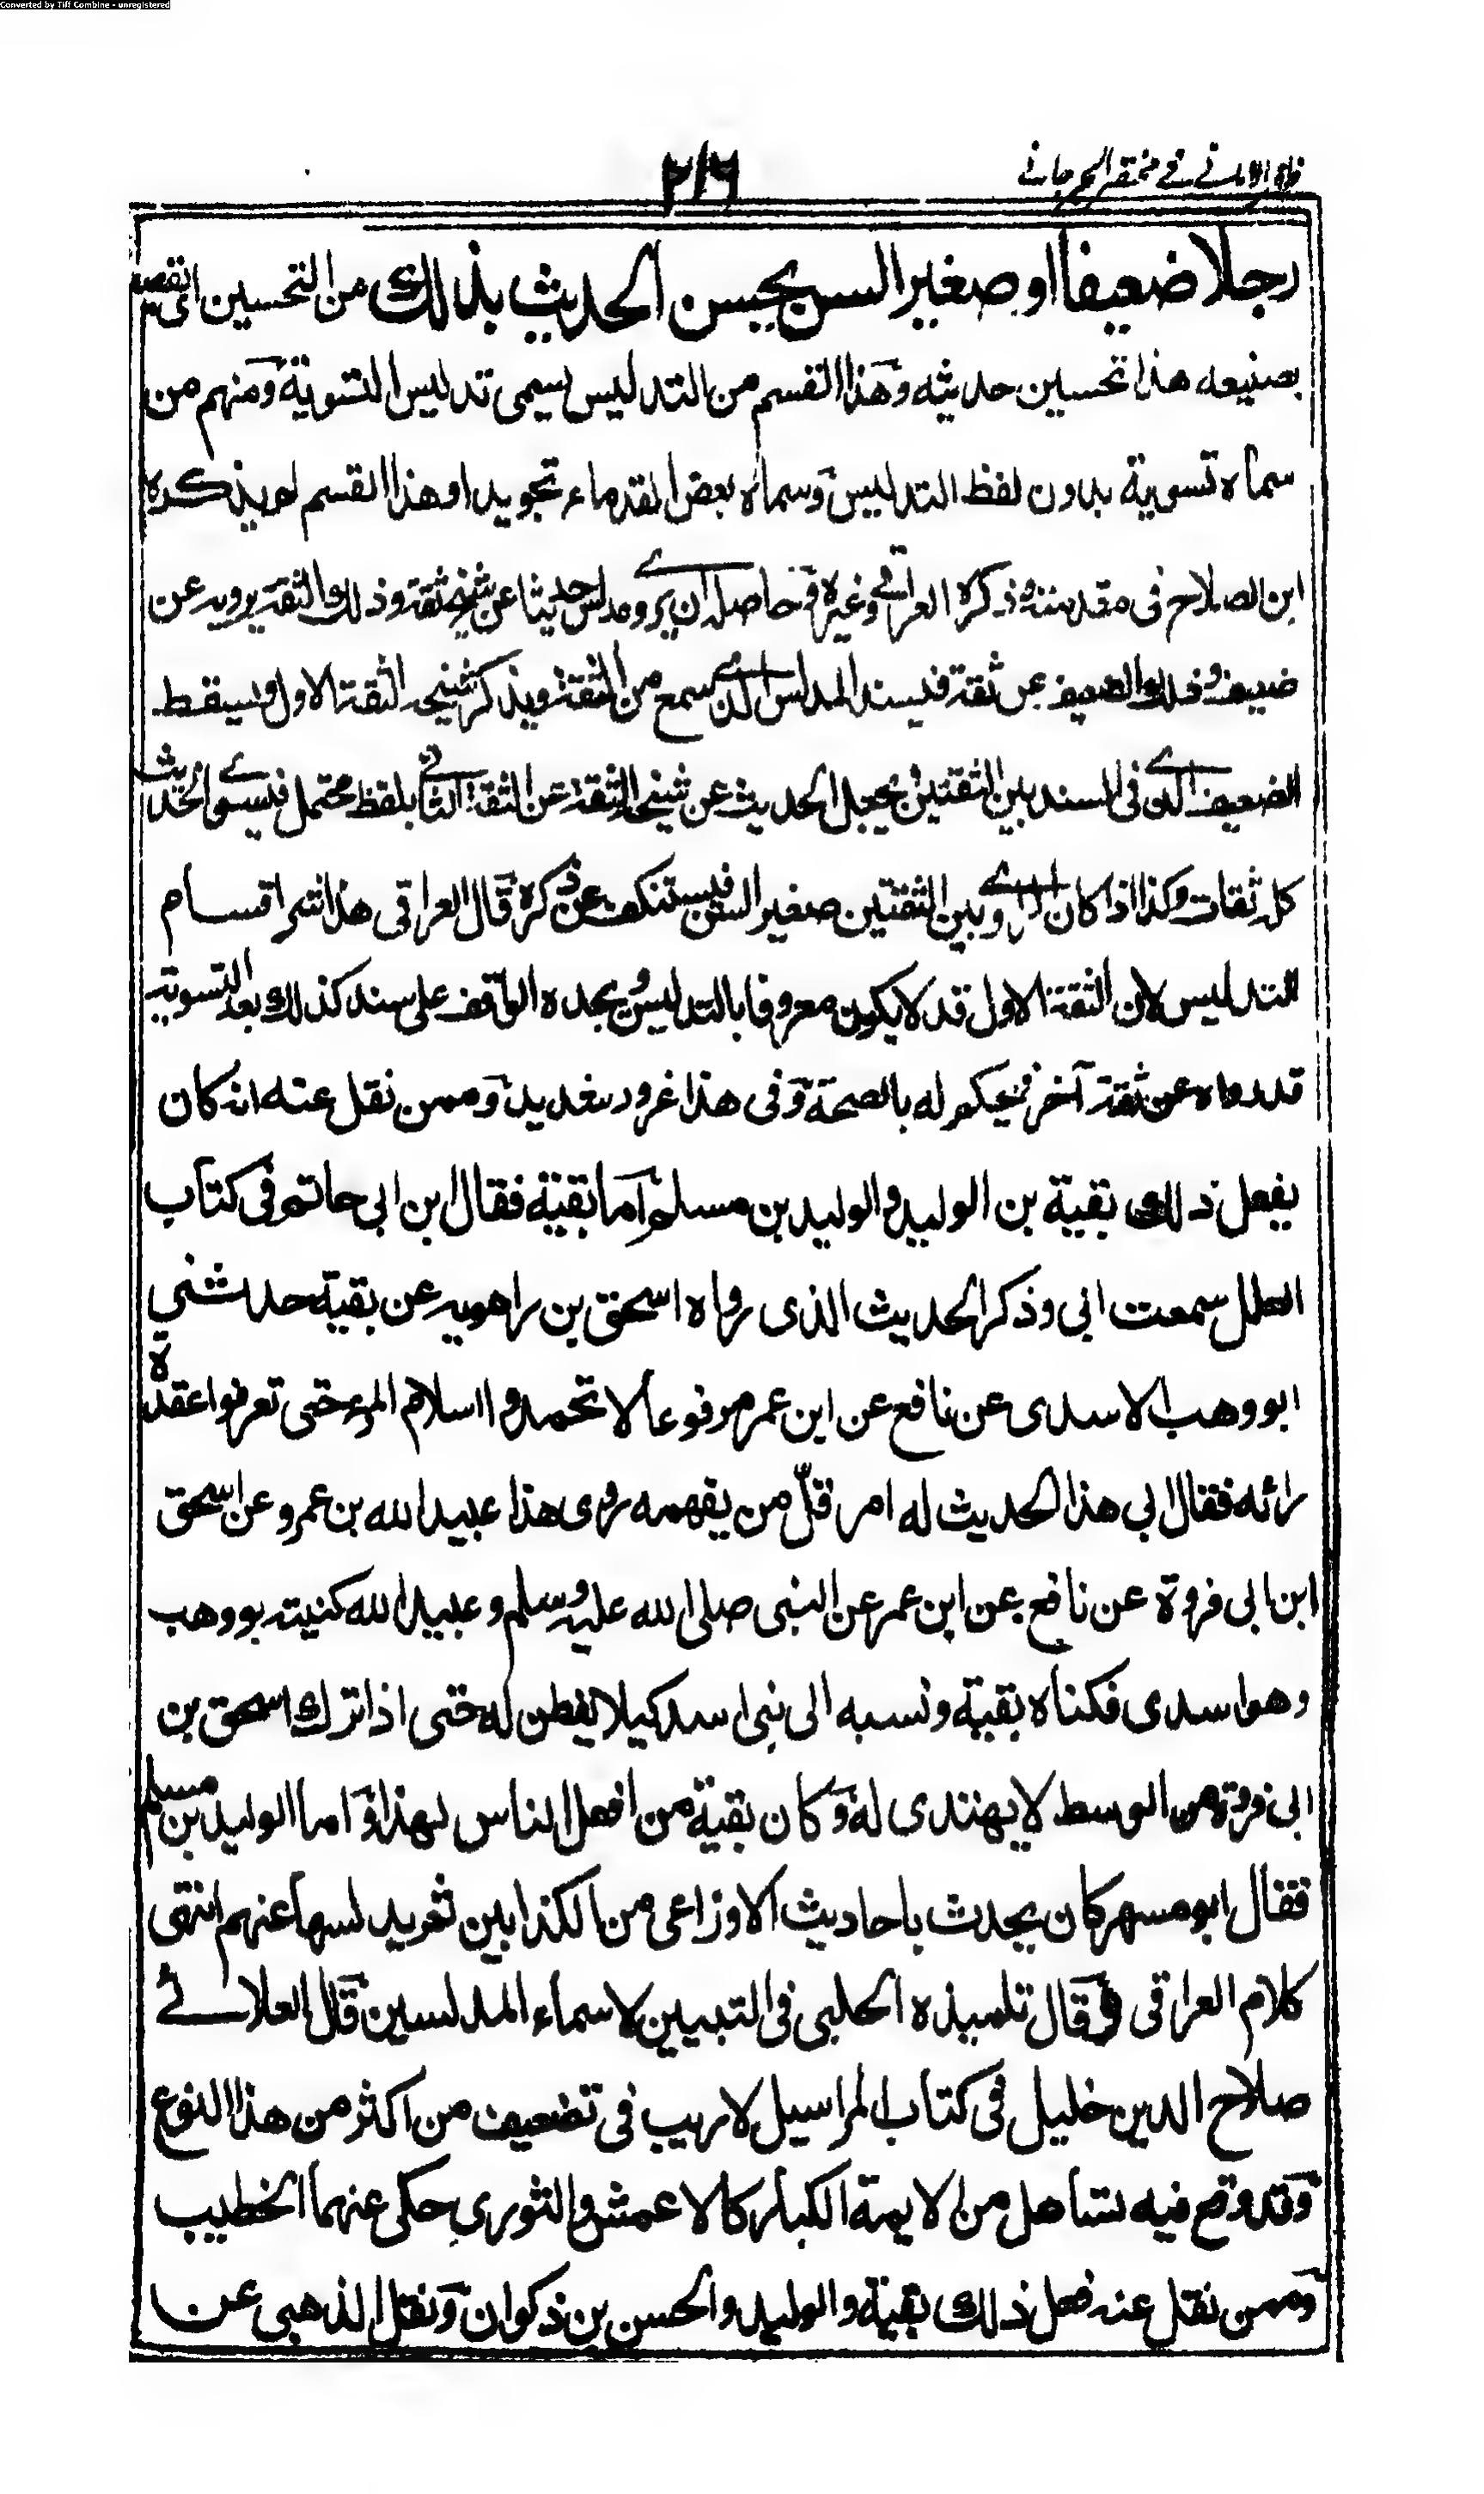 Converted by Tiff Combine - unregistered
ظفر الاماني في مختصر الجرجاني
٢١٦
رجلا ضعيفا او صغير السن يحسن الحديث بذلك من التحسين اى يقصد
بصنيعه هذا تحسين حديثه وهذا القسم من التدليس يسمى تدليس التسوية ومنهم من
سماه تسوية بدون لفظ التدليس وسماه بعض القدماء تجويدا وهذا القسم لم يذكره
ابن الصلاح فى مقدمته وذكره العراقي وغيره حاصله ان يروي مدلس حديثا عن شيخ ثقة وذلك الثقة يرويه عن
ضعيف وذلك الضعيف عن ثقة فيسند المدلس الذي سمع من الثقة ويذكر شيخه الثقة الاول ويسقط
الضعيف الذي فى السند بين الثقتين ويجعل الحديث عن شيخه الثقة عن الثقة الثاني بلفظ محتمل فيستوي الحديث
كله ثقات وكذا اذا كان الراوي بين الثقتين صغير السن فيستنكف عن ذكره قال العراقى هذا شر اقسام
التدليس لان الثقة الاول قد لا يكون معروفا بالتدليس ويجده الواقف على سند كذلك بعد التسوية
قد رواه عن ثقة آخر فيحكم له بالصحة وفى هذا غرور شديد وممن نقل عنه انه كان
يفعل ذلك بقية بن الوليد والوليد بن مسلم اما بقية فقال ابن ابى حاتم فى كتاب
العلل سمعت ابى وذكر الحديث الذى رواه اسحق بن راهويه عن بقية حدثنى
ابو وهب الاسدى عن نافع عن ابن عمر مرفوعا لا تحمدوا اسلام المرء حتى تعرفوا عقدة
رائه فقال ابى هذا الحديث له امر قلّ من يفهمه روى هذا عبيد الله بن عمرو عن اسحق
ابن ابى فروة عن نافع عن ابن عمر عن النبى صلى الله عليه وسلم وعبيد الله كنيته بو وهب
وهو اسدى فكناه بقية ونسبه الى بنى اسد كيلا يفطن له حتى اذا ترك اسحق بن
ابى فروة من الوسط لا يهتدى له وكان بقية من افعل الناس لهذا واما الوليد بن مسلم
فقال ابو مسهر كان يحدث باحاديث الاوزاعى من الكذابين ثم يدلسها عنهم انتهى
كلام العراقى وقال تلميذه الحلبى فى التبيين لاسماء المدلسين قال العلائي
صلاح الدين خليل فى كتاب المراسيل لا ريب فى تضعيف من اكثر من هذا النوع
وقد وقع فيه تساهل من الايمة الكبار كالاعمش والثوري حكى عنهما الخطيب
وممن نقل عنه فعل ذلك بقية والوليد والحسن بن ذكوان ونقل الذهبى عن